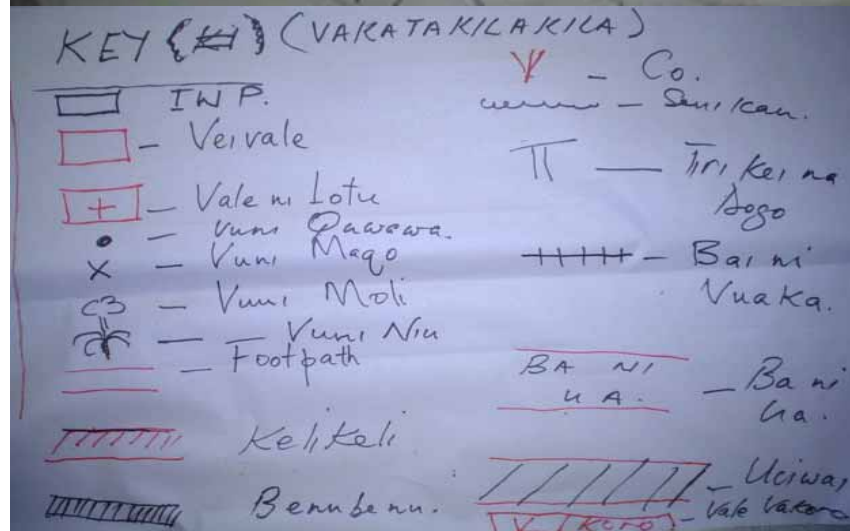 KEY (VAKATAKILAKILA)
IWP.
- Veivale
+ - Vale ni Lotu
- Vuni Qawawa.
X - Vuni Maqo
- Vuni Moli
- Vuni Niu
- Footpath
Kelikeli
Benubenu.
- Co.
- Senikau.
- Tiri kei na
Dogo
- Bai ni
Vuaka.
BA NI
UA. - Ba ni
Ua.
- Uciwai
V. Koro - Vale Vakoro